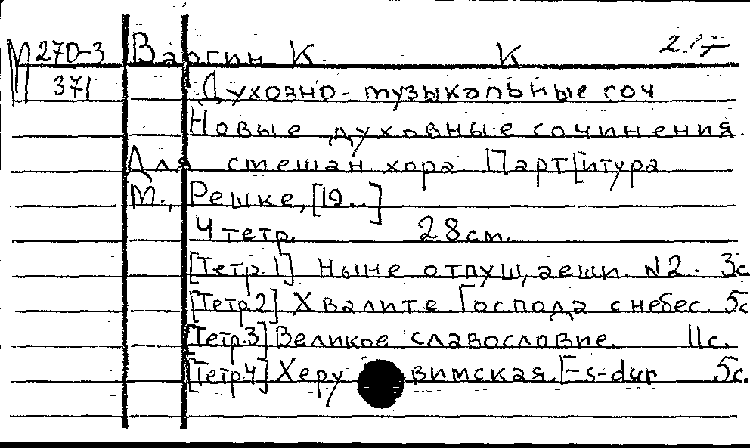 М270-3 Варгин К К
371 Духовно-музыкальные соч
Новые духовные сочинения.
Для смешан хора Парт[итура
М., Решке, [19..]
4 тетр. 28 см.
[Тетр.1] Ныне отпущаеши. №2. 3с
[Тетр.2] Хвалите Господа с небес. 5с
[Тетр.3] Великое славословие. 11с.
[Тетр.4] Херувимская. Es-dur 5с.